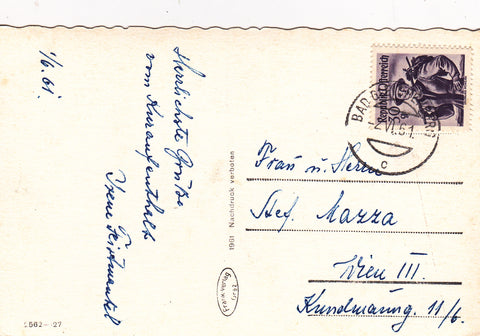 1/6.61.
Herzlichste Grüße
vom Kuraufenthalt
Irene
1961 Nachdruck verboten
Republik Österreich
BAD G
2.VI.61
c
Frau u. Herrn
Stef. Mazza
Wien III.
Kundmanng. 11/6.